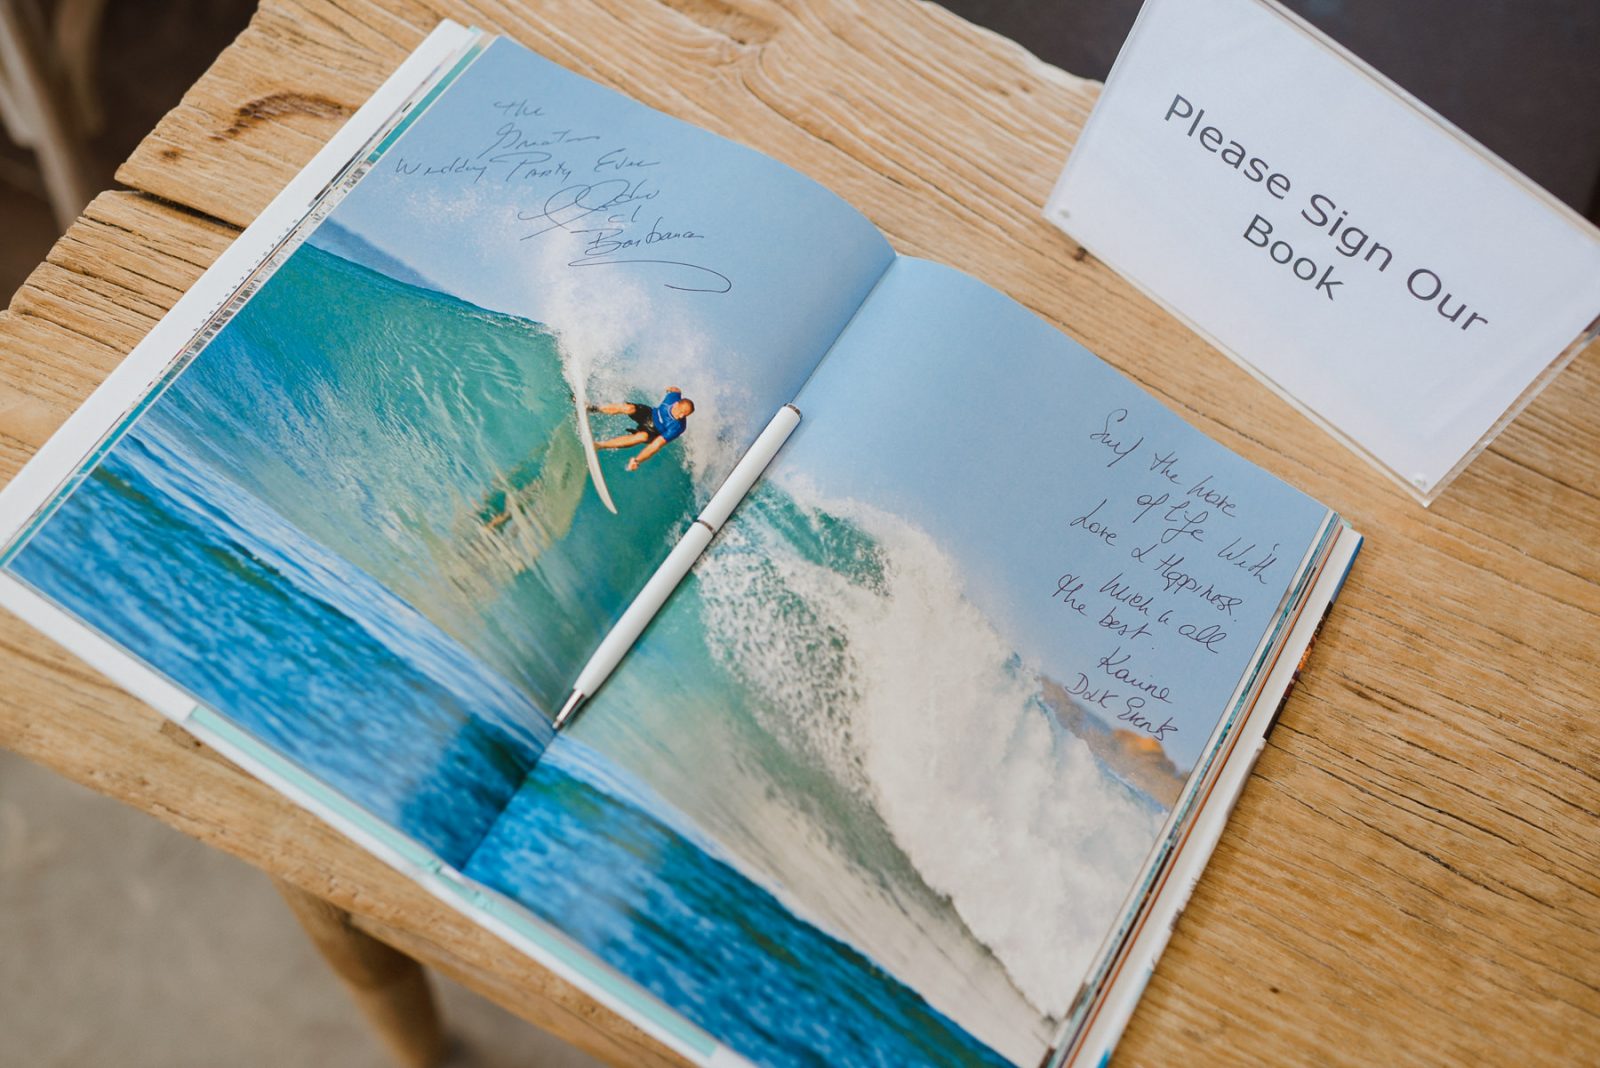 the
Greatest
Wedding Party Ever
et
Barbara
Surf the Wave
of life With
Love & Happiness.
Wish u all
the best.
Karine
D&K Events
Please Sign Our
Book